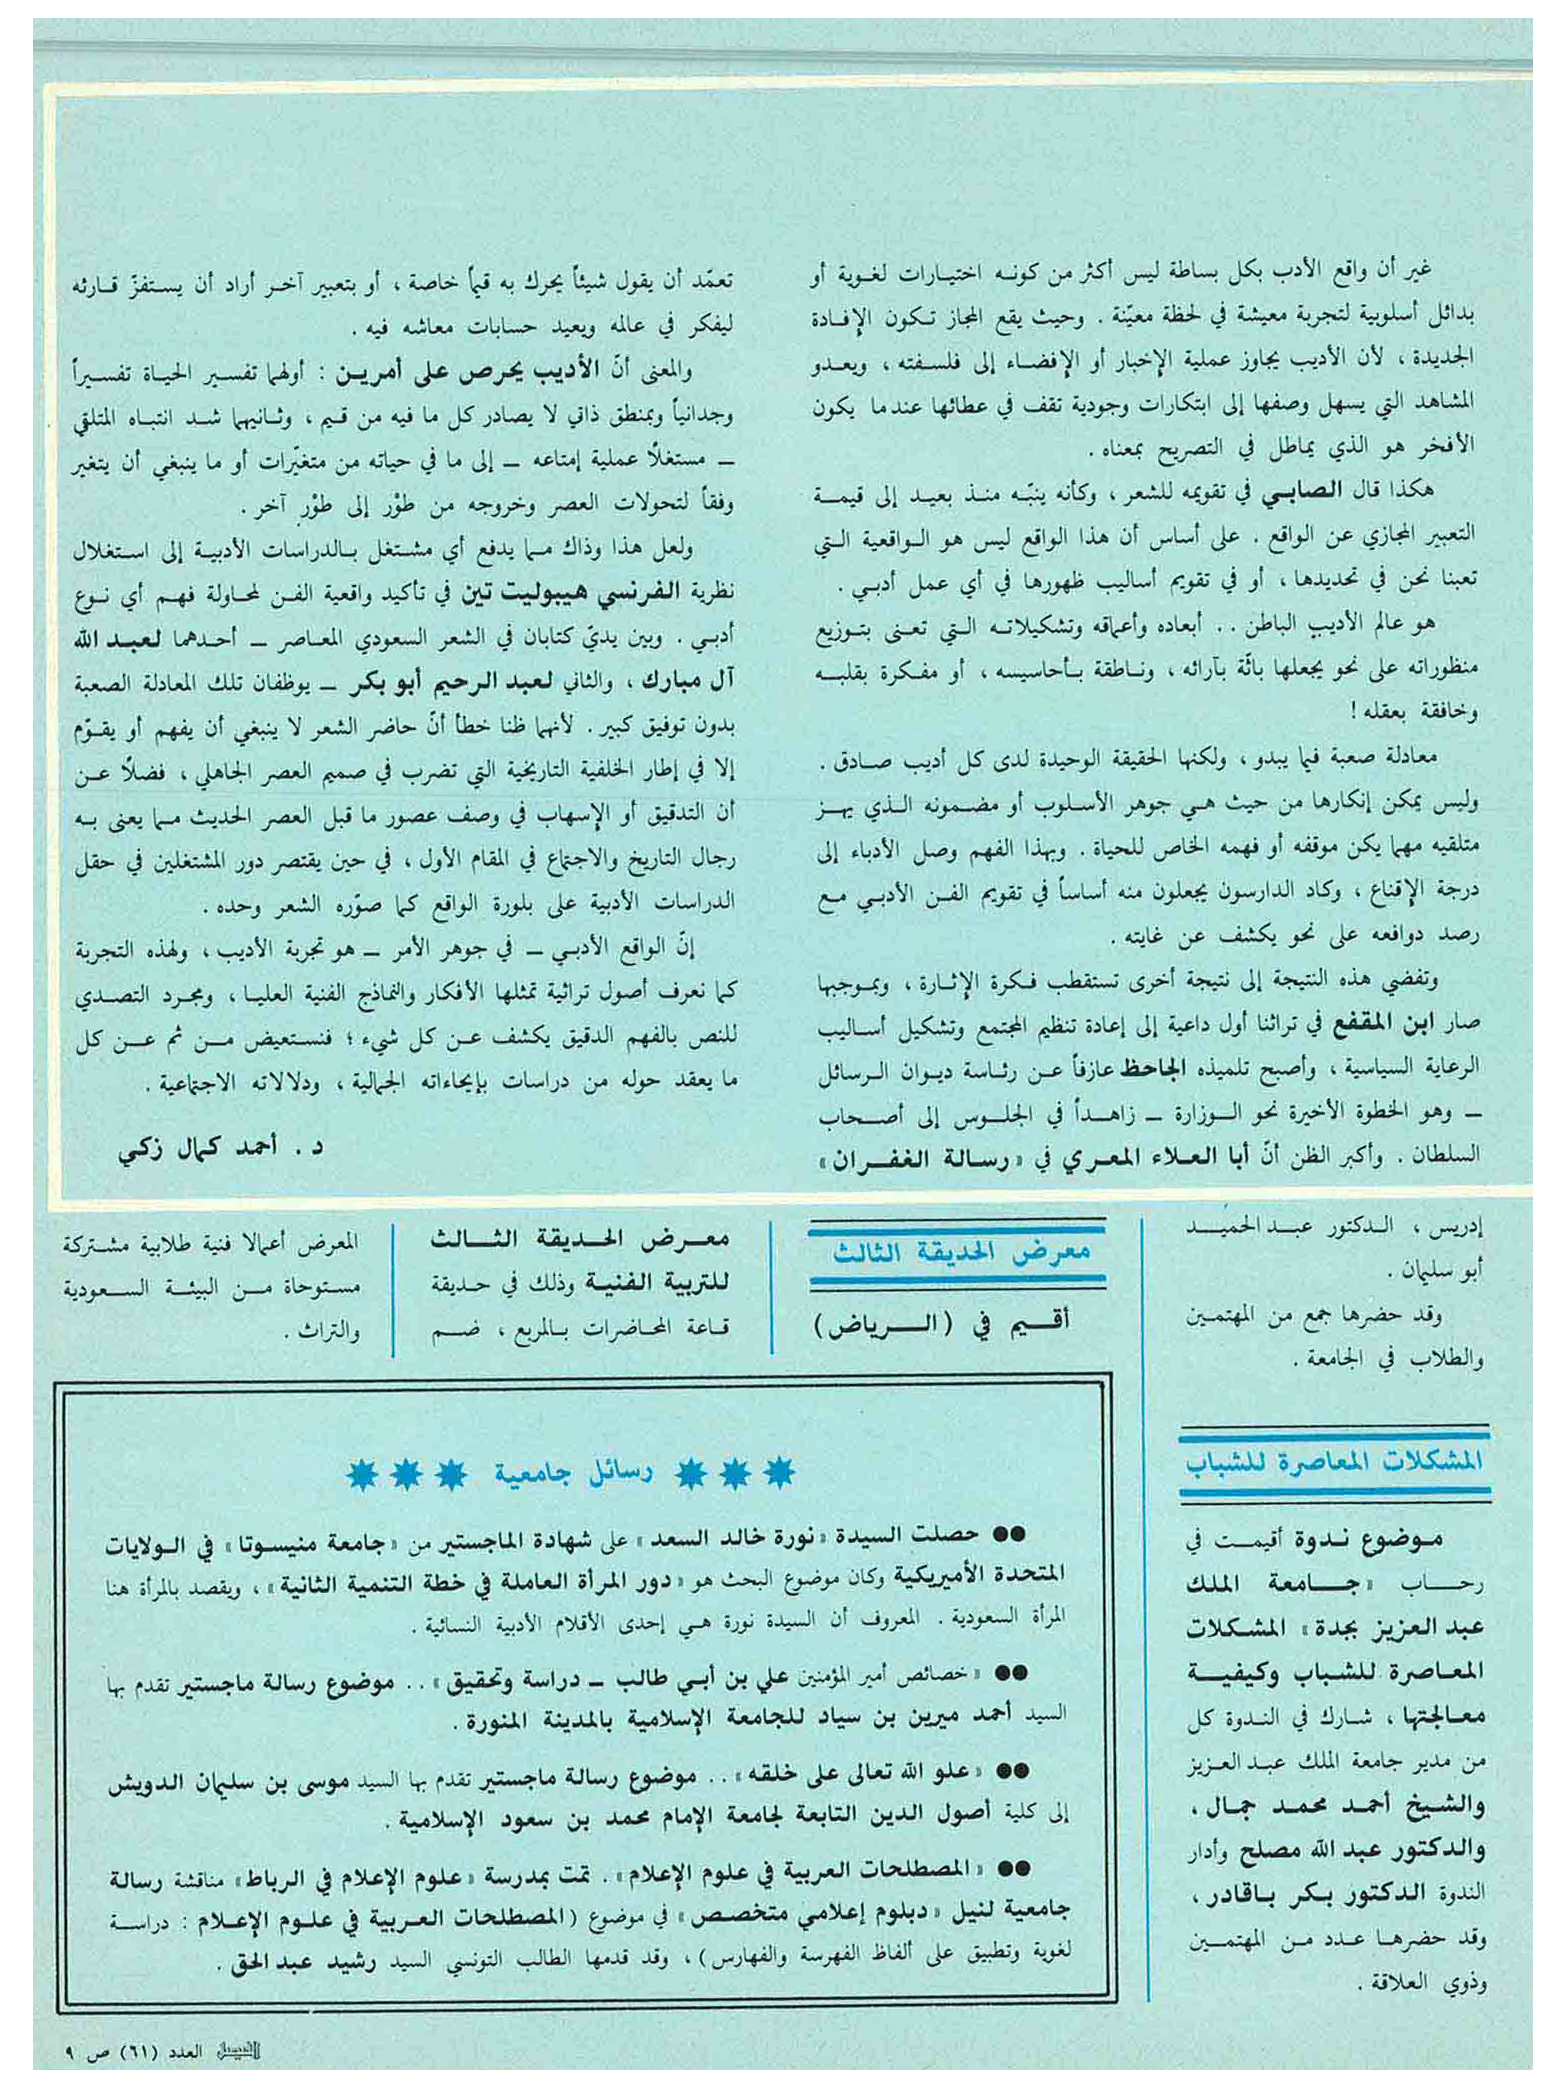 غير أن واقع الأدب بكل بساطة ليس أكثر من كونه اختيارات لغوية أو
بدائل أسلوبية لتجربة معيشة في لحظة معيّنة . وحيث يقع المجاز تكون الإفادة
الجديدة ، لأن الأديب يجاوز عملية الإخبار أو الإفضاء إلى فلسفته ، ويعدو
المشاهد التي يسهل وصفها إلى ابتكارات وجودية تقف في عطائها عندما يكون
الأفخر هو الذي يماطل في التصريح بمعناه .
هكذا قال الصابي في تقويمه للشعر ، وكأنه ينبّه منذ بعيد إلى قيمة
التعبير المجازي عن الواقع . على أساس أن هذا الواقع ليس هو الواقعية التي
تعبنا نحن في تحديدها ، أو في تقويم أساليب ظهورها في أي عمل أدبي .
هو عالم الأديب الباطن .. أبعاده وأعماقه وتشكيلاته التي تعنى بتوزيع
منظوراته على نحو يجعلها باثّة بآرائه ، وناطقة بأحاسيسه ، أو مفكرة بقلبه
وخافقة بعقله !
معادلة صعبة فيما يبدو ، ولكنها الحقيقة الوحيدة لدى كل أديب صادق .
وليس يمكن إنكارها من حيث هي جوهر الأسلوب أو مضمونه الذي يهز
متلقيه مهما يكن موقفه أو فهمه الخاص للحياة . وبهذا الفهم وصل الأدباء إلى
درجة الإقناع ، وكاد الدارسون يجعلون منه أساساً في تقويم الفن الأدبي مع
رصد دوافعه على نحو يكشف عن غايته .
وتفضي هذه النتيجة إلى نتيجة أخرى تستقطب فكرة الإثارة ، وبموجبها
صار ابن المقفع في تراثنا أول داعية إلى إعادة تنظيم المجتمع وتشكيل أساليب
الرعاية السياسية ، وأصبح تلميذه الجاحظ عازفاً عن رئاسة ديوان الرسائل
ـ وهو الخطوة الأخيرة نحو الوزارة ـ زاهداً في الجلوس إلى أصحاب
السلطان . وأكبر الظن أنّ أبا العلاء المعري في « رسالة الغفران »
تعمّد أن يقول شيئاً يحرك به قيماً خاصة ، أو بتعبير آخر أراد أن يستفزّ قارئه
ليفكر في عالمه ويعيد حسابات معاشه فيه .
والمعنى أنّ الأديب يحرص على أمرين : أولهما تفسير الحياة تفسيراً
وجدانياً وبمنطق ذاتي لا يصادر كل ما فيه من قيم ، وثانيهما شد انتباه المتلقي
ـ مستغلًا عملية إمتاعه ـ إلى ما في حياته من متغيّرات أو ما ينبغي أن يتغير
وفقاً لتحولات العصر وخروجه من طوْر إلى طوْر آخر .
ولعل هذا وذاك مما يدفع أي مشتغل بالدراسات الأدبية إلى استغلال
نظرية الفرنسي هيبوليت تين في تأكيد واقعية الفن لمحاولة فهم أي نوع
أدبي . وبين يديّ كتابان في الشعر السعودي المعاصر ـ أحدهما لعبد الله
آل مبارك ، والثاني لعبد الرحيم أبو بكر ـ يوظفان تلك المعادلة الصعبة
بدون توفيق كبير . لأنهما ظنا خطأ أنّ حاضر الشعر لا ينبغي أن يفهم أو يقوّم
إلا في إطار الخلفية التاريخية التي تضرب في صميم العصر الجاهلي ، فضلًا عن
أن التدقيق أو الإسهاب في وصف عصور ما قبل العصر الحديث مما يعنى به
رجال التاريخ والاجتماع في المقام الأول ، في حين يقتصر دور المشتغلين في حقل
الدراسات الأدبية على بلورة الواقع كما صوّره الشعر وحده .
إنّ الواقع الأدبي ـ في جوهر الأمر ـ هو تجربة الأديب ، ولهذه التجربة
كما نعرف أصول تراثية تمثلها الأفكار والنماذج الفنية العليا ، ومجرد التصدي
للنص بالفهم الدقيق يكشف عن كل شيء ؛ فنستعيض من ثم عن كل
ما يعقد حوله من دراسات بإيحاءاته الجمالية ، ودلالاته الاجتماعية .
د . أحمد كمال زكي
إدريس ، الدكتور عبد الحميد
أبو سليمان .
وقد حضرها جمع من المهتمين
والطلاب في الجامعة .
المشكلات المعاصرة للشباب
موضوع ندوة أقيمت في
رحاب « جامعة الملك
عبد العزيز بجدة » المشكلات
المعاصرة للشباب وكيفية
معالجتها ، شارك في الندوة كل
من مدير جامعة الملك عبد العزيز
والشيخ أحمد محمد جمال ،
والدكتور عبد الله مصلح وأدار
الندوة الدكتور بكر باقادر ،
وقد حضرها عدد من المهتمين
وذوي العلاقة .
معرض الحديقة الثالث
أقيم في (الرياض)
معرض الحديقة الثالث
للتربية الفنية وذلك في حديقة
قاعة المحاضرات بالمربع ، ضم
المعرض أعمالا فنية طلابية مشتركة
مستوحاة من البيئة السعودية
والتراث .
رسائل جامعية
●● حصلت السيدة « نورة خالد السعد » على شهادة الماجستير من « جامعة منيسوتا » في الولايات
المتحدة الأميريكية وكان موضوع البحث هو « دور المرأة العاملة في خطة التنمية الثانية » ، ويقصد بالمرأة هنا
المرأة السعودية . المعروف أن السيدة نورة هي إحدى الأقلام الأدبية النسائية .
●● « خصائص أمير المؤمنين علي بن أبي طالب ـ دراسة وتحقيق » .. موضوع رسالة ماجستير تقدم بها
السيد أحمد ميرين بن سياد للجامعة الإسلامية بالمدينة المنورة .
●● « علو الله تعالى على خلقه » .. موضوع رسالة ماجستير تقدم بها السيد موسى بن سليمان الدويش
إلى كلية أصول الدين التابعة لجامعة الإمام محمد بن سعود الإسلامية .
●● « المصطلحات العربية في علوم الإعلام » . تمت بمدرسة « علوم الإعلام في الرباط » مناقشة رسالة
جامعية لنيل « دبلوم إعلامي متخصص » في موضوع (المصطلحات العربية في علوم الإعلام : دراسة
لغوية وتطبيق على ألفاظ الفهرسة والفهارس) ، وقد قدمها الطالب التونسي السيد رشيد عبد الحق .
الفيصل العدد (٦١) ص ٩